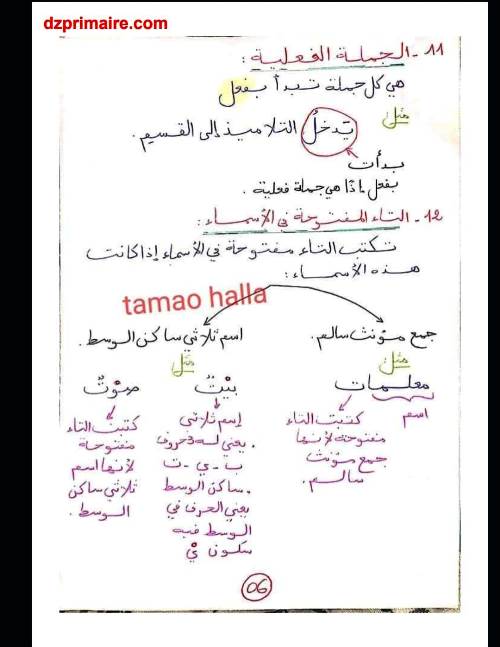 dzprimaire.com
11- الجملة الفعلية :
هي كل جملة تبدأ بفعل
مثل
يَدخلُ التلاميذ إلى القسم.
بدأت
بفعل إذًا هي جملة فعلية .
12- التاء المفتوحة في الأسماء :
تكتب التاء مفتوحة في الأسماء إذا كانت
هذه الأسماء :
tamao halla
جمع مؤنث سالم.
مثل
معلمات
اسم
كتبت التاء
مفتوحة لأنها
جمع مؤنث
سالم.
اسم ثلاثي ساكن الوسط.
مثل
بيْتٌ
إسم ثلاثي
يعني له 3 حروف.
ب - ي - ت
ساكن الوسط.
يعني الحرف في
الوسط فيه
سكون يْ
صوْتٌ
كتبت التاء
مفتوحة
لأنها اسم
ثلاثي ساكن
الوسط.
06